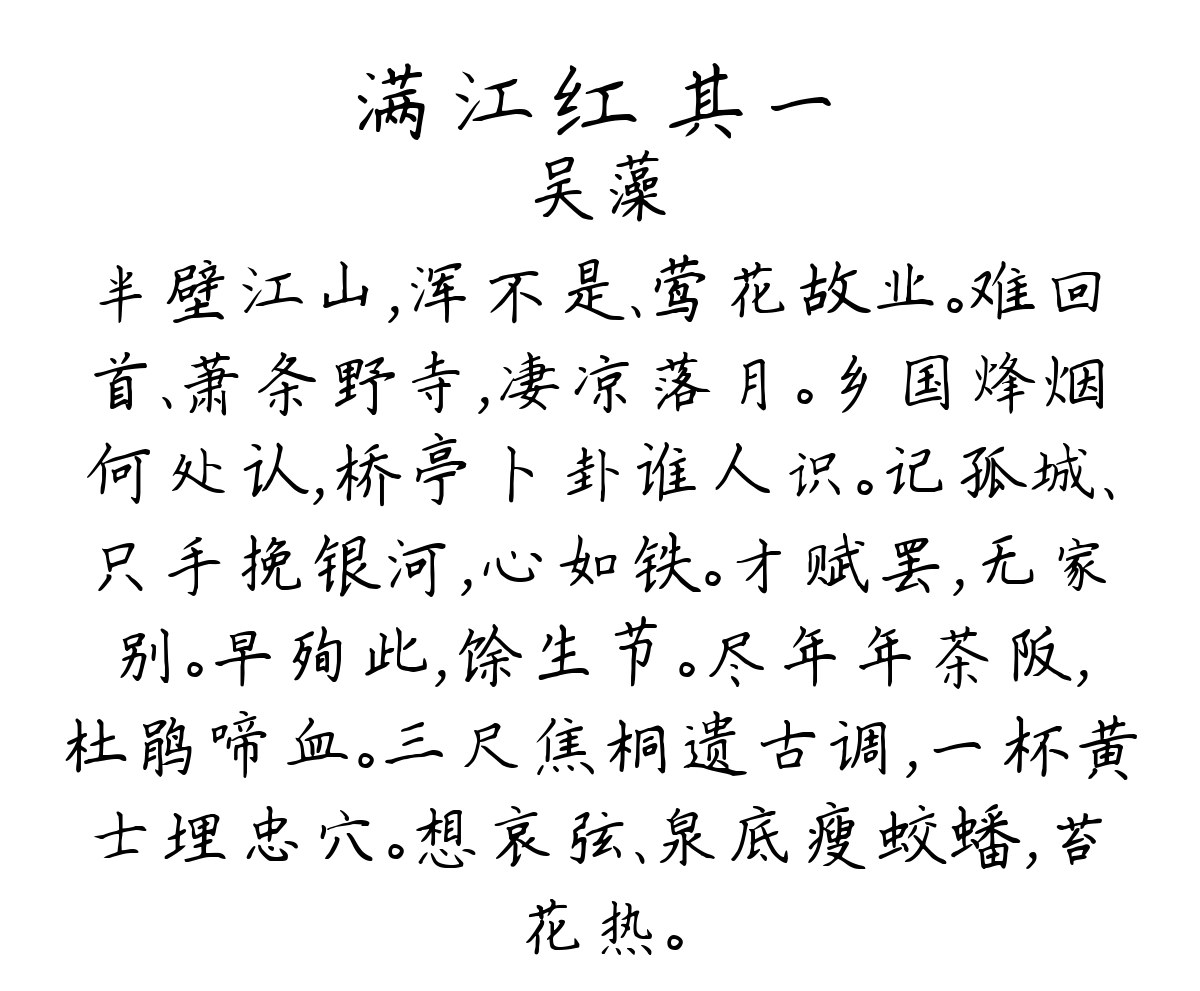 满江红 其一
吴藻
半壁江山,浑不是、莺花故业。难回
首、萧条野寺,凄凉落月。乡国烽烟
何处认,桥亭卜卦谁人识。记孤城、
只手挽银河,心如铁。才赋罢,无家
别。早殉此,馀生节。尽年年茶阪,
杜鹃啼血。三尺焦桐遗古调,一杯黄
士埋忠穴。想哀弦、泉底瘦蛟蟠,苔
花热。